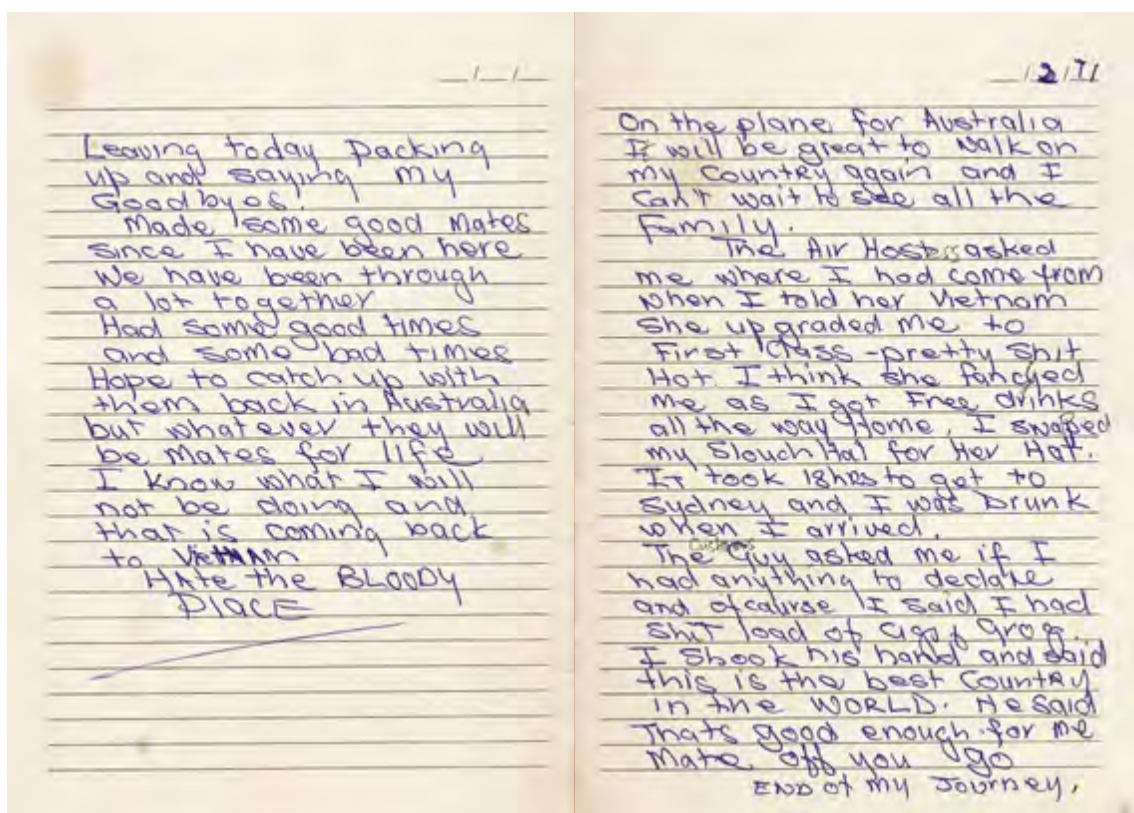 __/__/__
Leaving today packing
up and saying my
Goodbyes.
Made some good Mates
since I have been here
We have been through
a lot together
Had some good times
and some bad times
Hope to catch up with
them back in Australia
but whatever they will
be Mates for life
I know what I will
not be doing and
that is coming back
to VIETNAM
HAte the BLOODY
PlACE
__/2/71
On the plane for Australia
It will be great to walk on
my Country again and I
Can't wait to see all the
Family.
The Air Hostess asked
me where I had come from
when I told her Vietnam
She upgraded me to
First Class - pretty Shit
Hot. I think she fancyed
me as I got Free drinks
all the way Home. I swaped
my Slouch Hat for Her Hat.
IT took 18hrs to get to
Sydney and I was Drunk
when I arrived.
Customs
The Guy asked me if I
had anything to declare
and ofcaurse I said I had
ShiT load of Cigs & Grog.
I Shook his hand and said
this is the best Country
in the WORLD. He Said
Thats good enough for me
Mate off you go
END of my Journey.